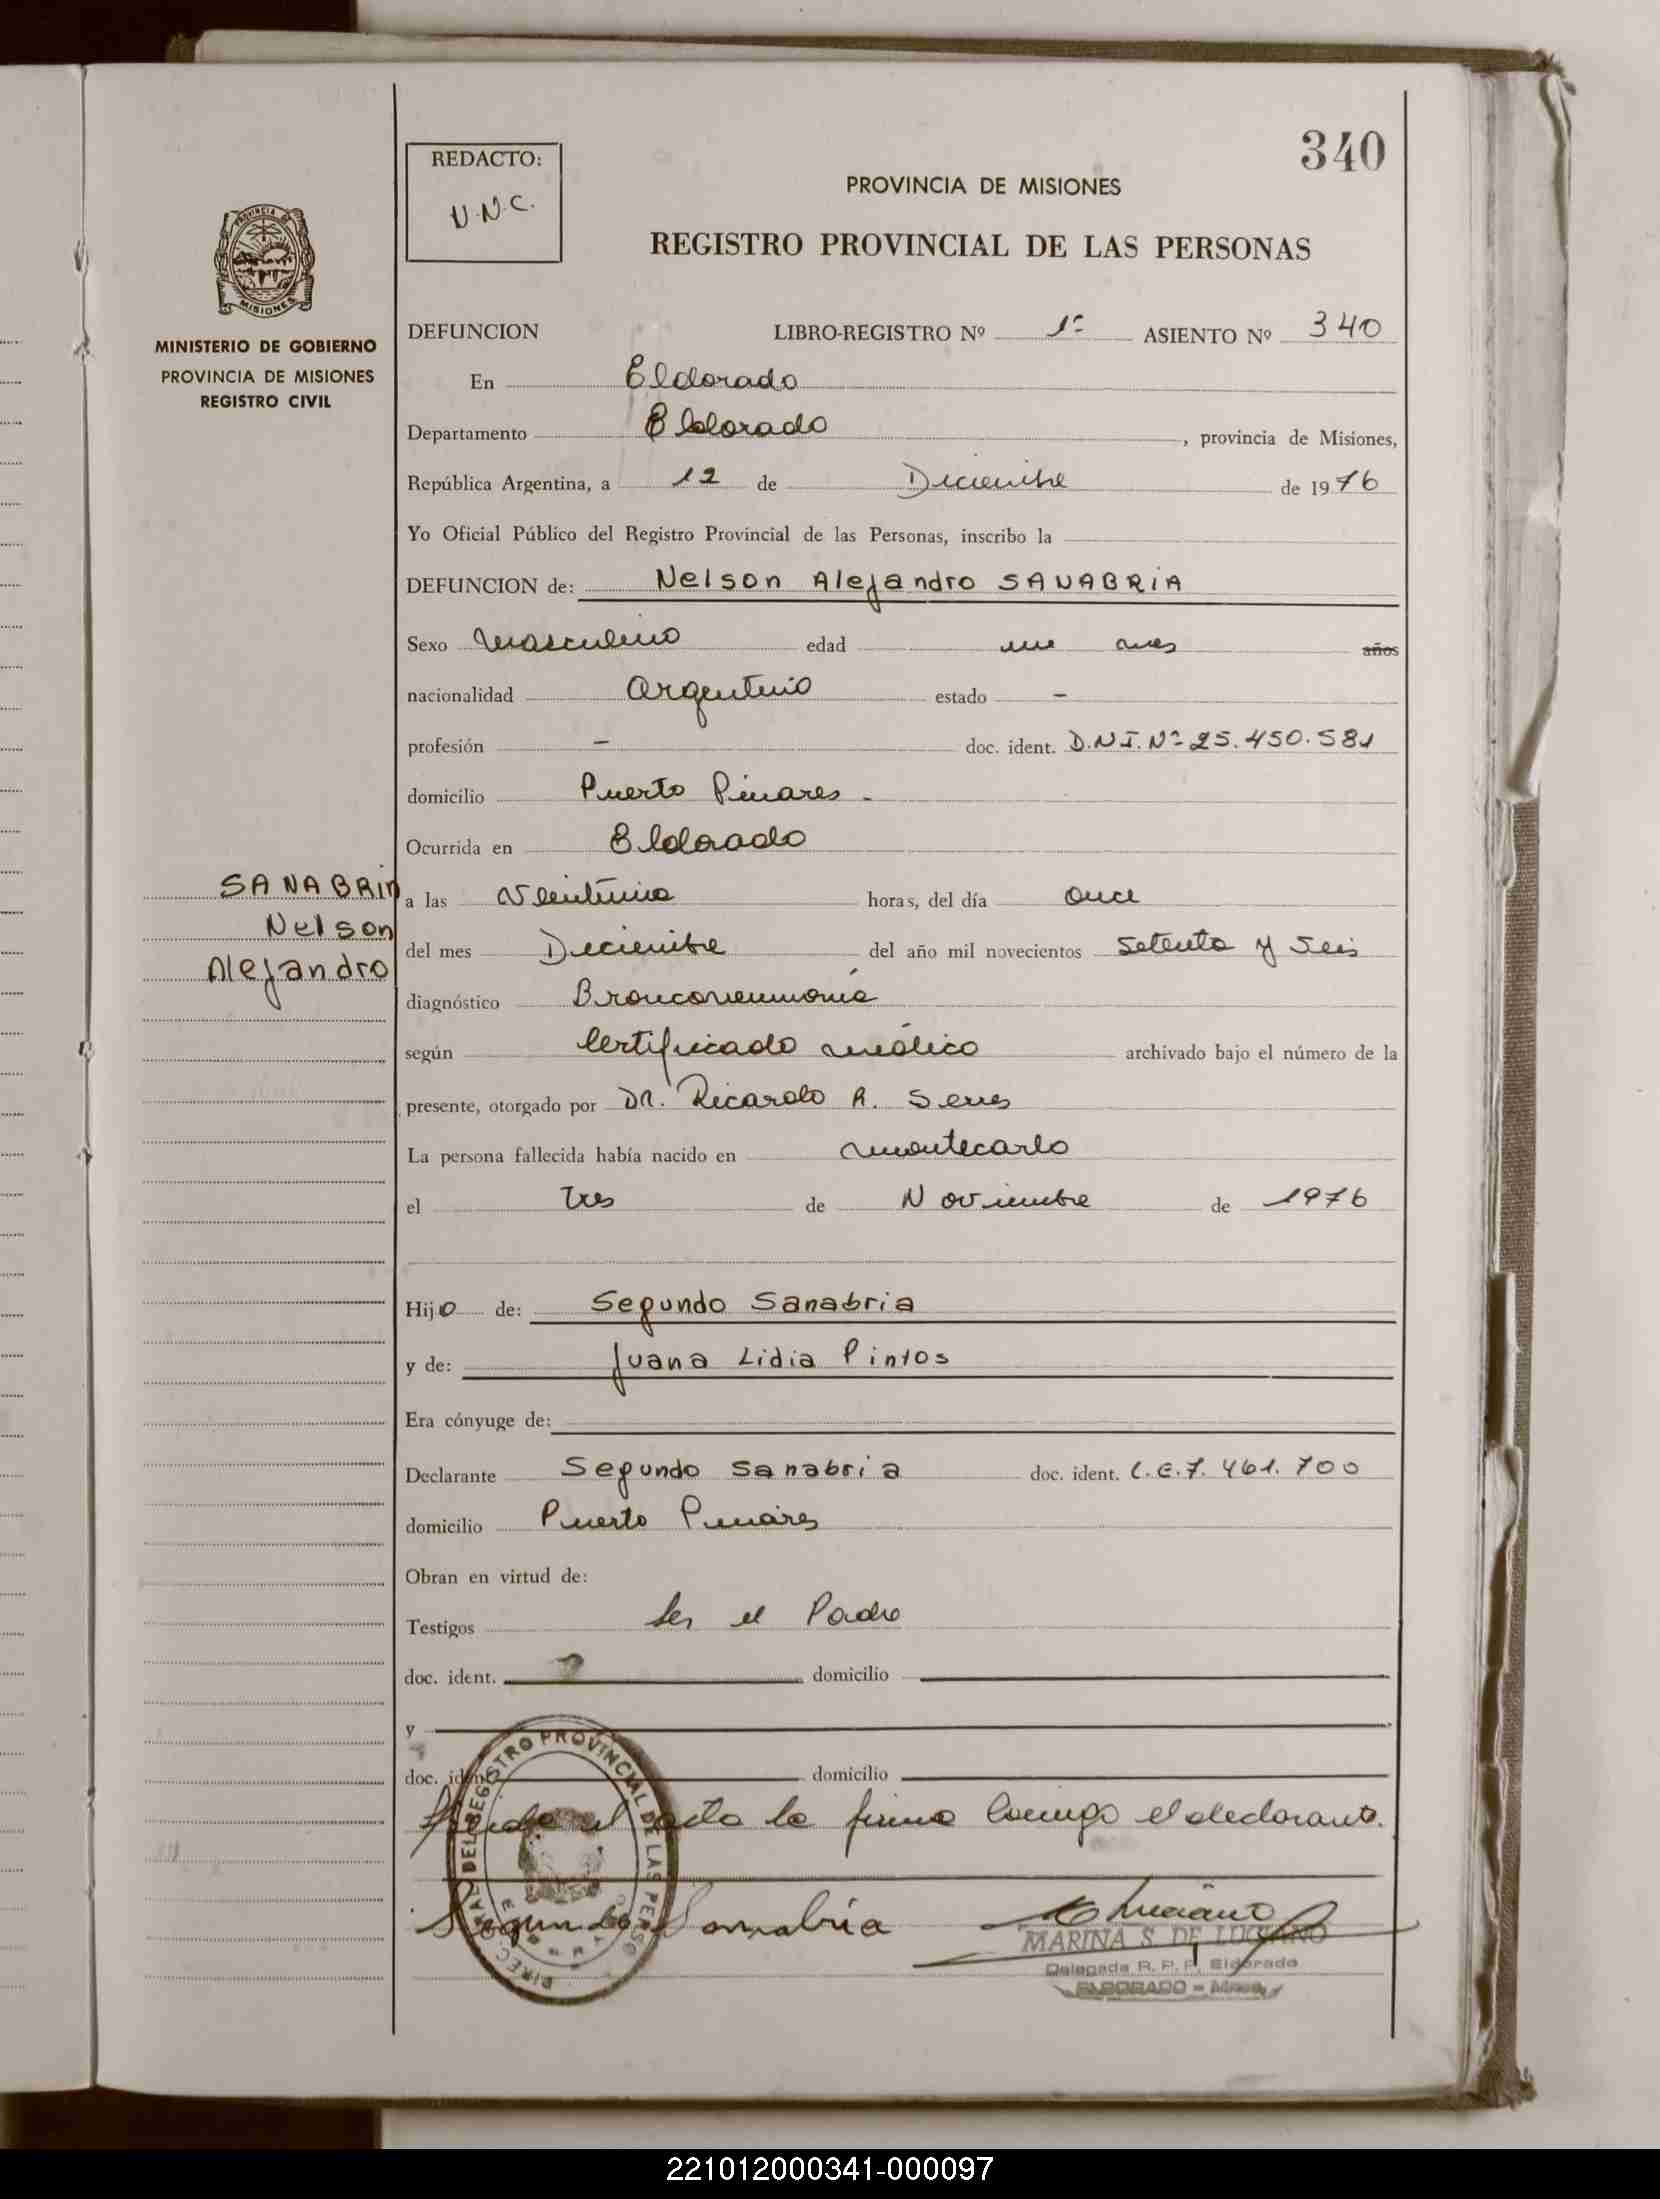 340
REDACTO:
V.N.C.
PROVINCIA DE MISIONES
REGISTRO PROVINCIAL DE LAS PERSONAS
PROVINCIA DE
MISIONES
MINISTERIO DE GOBIERNO
PROVINCIA DE MISIONES
REGISTRO CIVIL
DEFUNCION LIBRO-REGISTRO Nº 1º ASIENTO Nº 340
En Eldorado
Departamento Eldorado, provincia de Misiones,
República Argentina, a 12 de Diciembre de 1976
Yo Oficial Público del Registro Provincial de las Personas, inscribo la
DEFUNCION de: Nelson Alejandro SANABRIA
Sexo masculino edad un mes años
nacionalidad Argentino estado -
profesión - doc. ident. D.N.I. Nº 25.450.581
domicilio Puerto Pinares -
Ocurrida en Eldorado
SANABRIA
Nelson
Alejandro
a las Veintiuna horas, del día once
del mes Diciembre del año mil novecientos setenta y seis
diagnóstico Bronconeumonía
según Certificado médico archivado bajo el número de la
presente, otorgado por DR. Ricardo R.
La persona fallecida había nacido en Montecarlo
el tres de Noviembre de 1976
Hijo de: Segundo Sanabria
y de: Juana Lidia Pintos
Era cónyuge de:
Declarante Segundo Sanabria doc. ident. L.E. 7.461.700
domicilio Puerto Pinares
Obran en virtud de:
Testigos Ser el Padre
doc. ident. domicilio
y
doc. ident. domicilio
el acta la firma conmigo el declarante.
DIREC. GRAL. DEL REGISTRO PROVINCIAL DE LAS PERSO
Segundo Sanabria
MARINA S. DE LUCIANO
Delegada R. P. P. Eldorado
ELDORADO - Mnes.
221012000341-000097